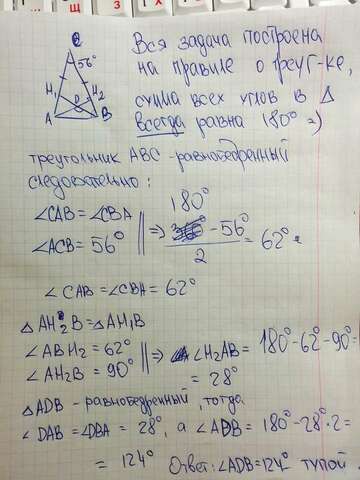 C
56°
H₁
H₂
D
A
B
Вся задача построена
на правиле о треуг-ке,
сумма всех углов в △
всегда равна 180° =)
треугольник ABC - равнобедренный
следовательно:
∠CAB = ∠CBA
∠ACB = 56°
=> (180° - 56°) / 2 = 62°
∠CAB = ∠CBA = 62°
△AH₂B = △AH₁B
∠ABH₂ = 62°
∠AH₂B = 90°
=> ∠H₂AB = 180° - 62° - 90° =
= 28°
△ADB - равнобедренный, тогда
∠DAB = ∠DBA = 28°, а ∠ADB = 180° - 28°·2 =
= 124°
Ответ: ∠ADB = 124° тупой